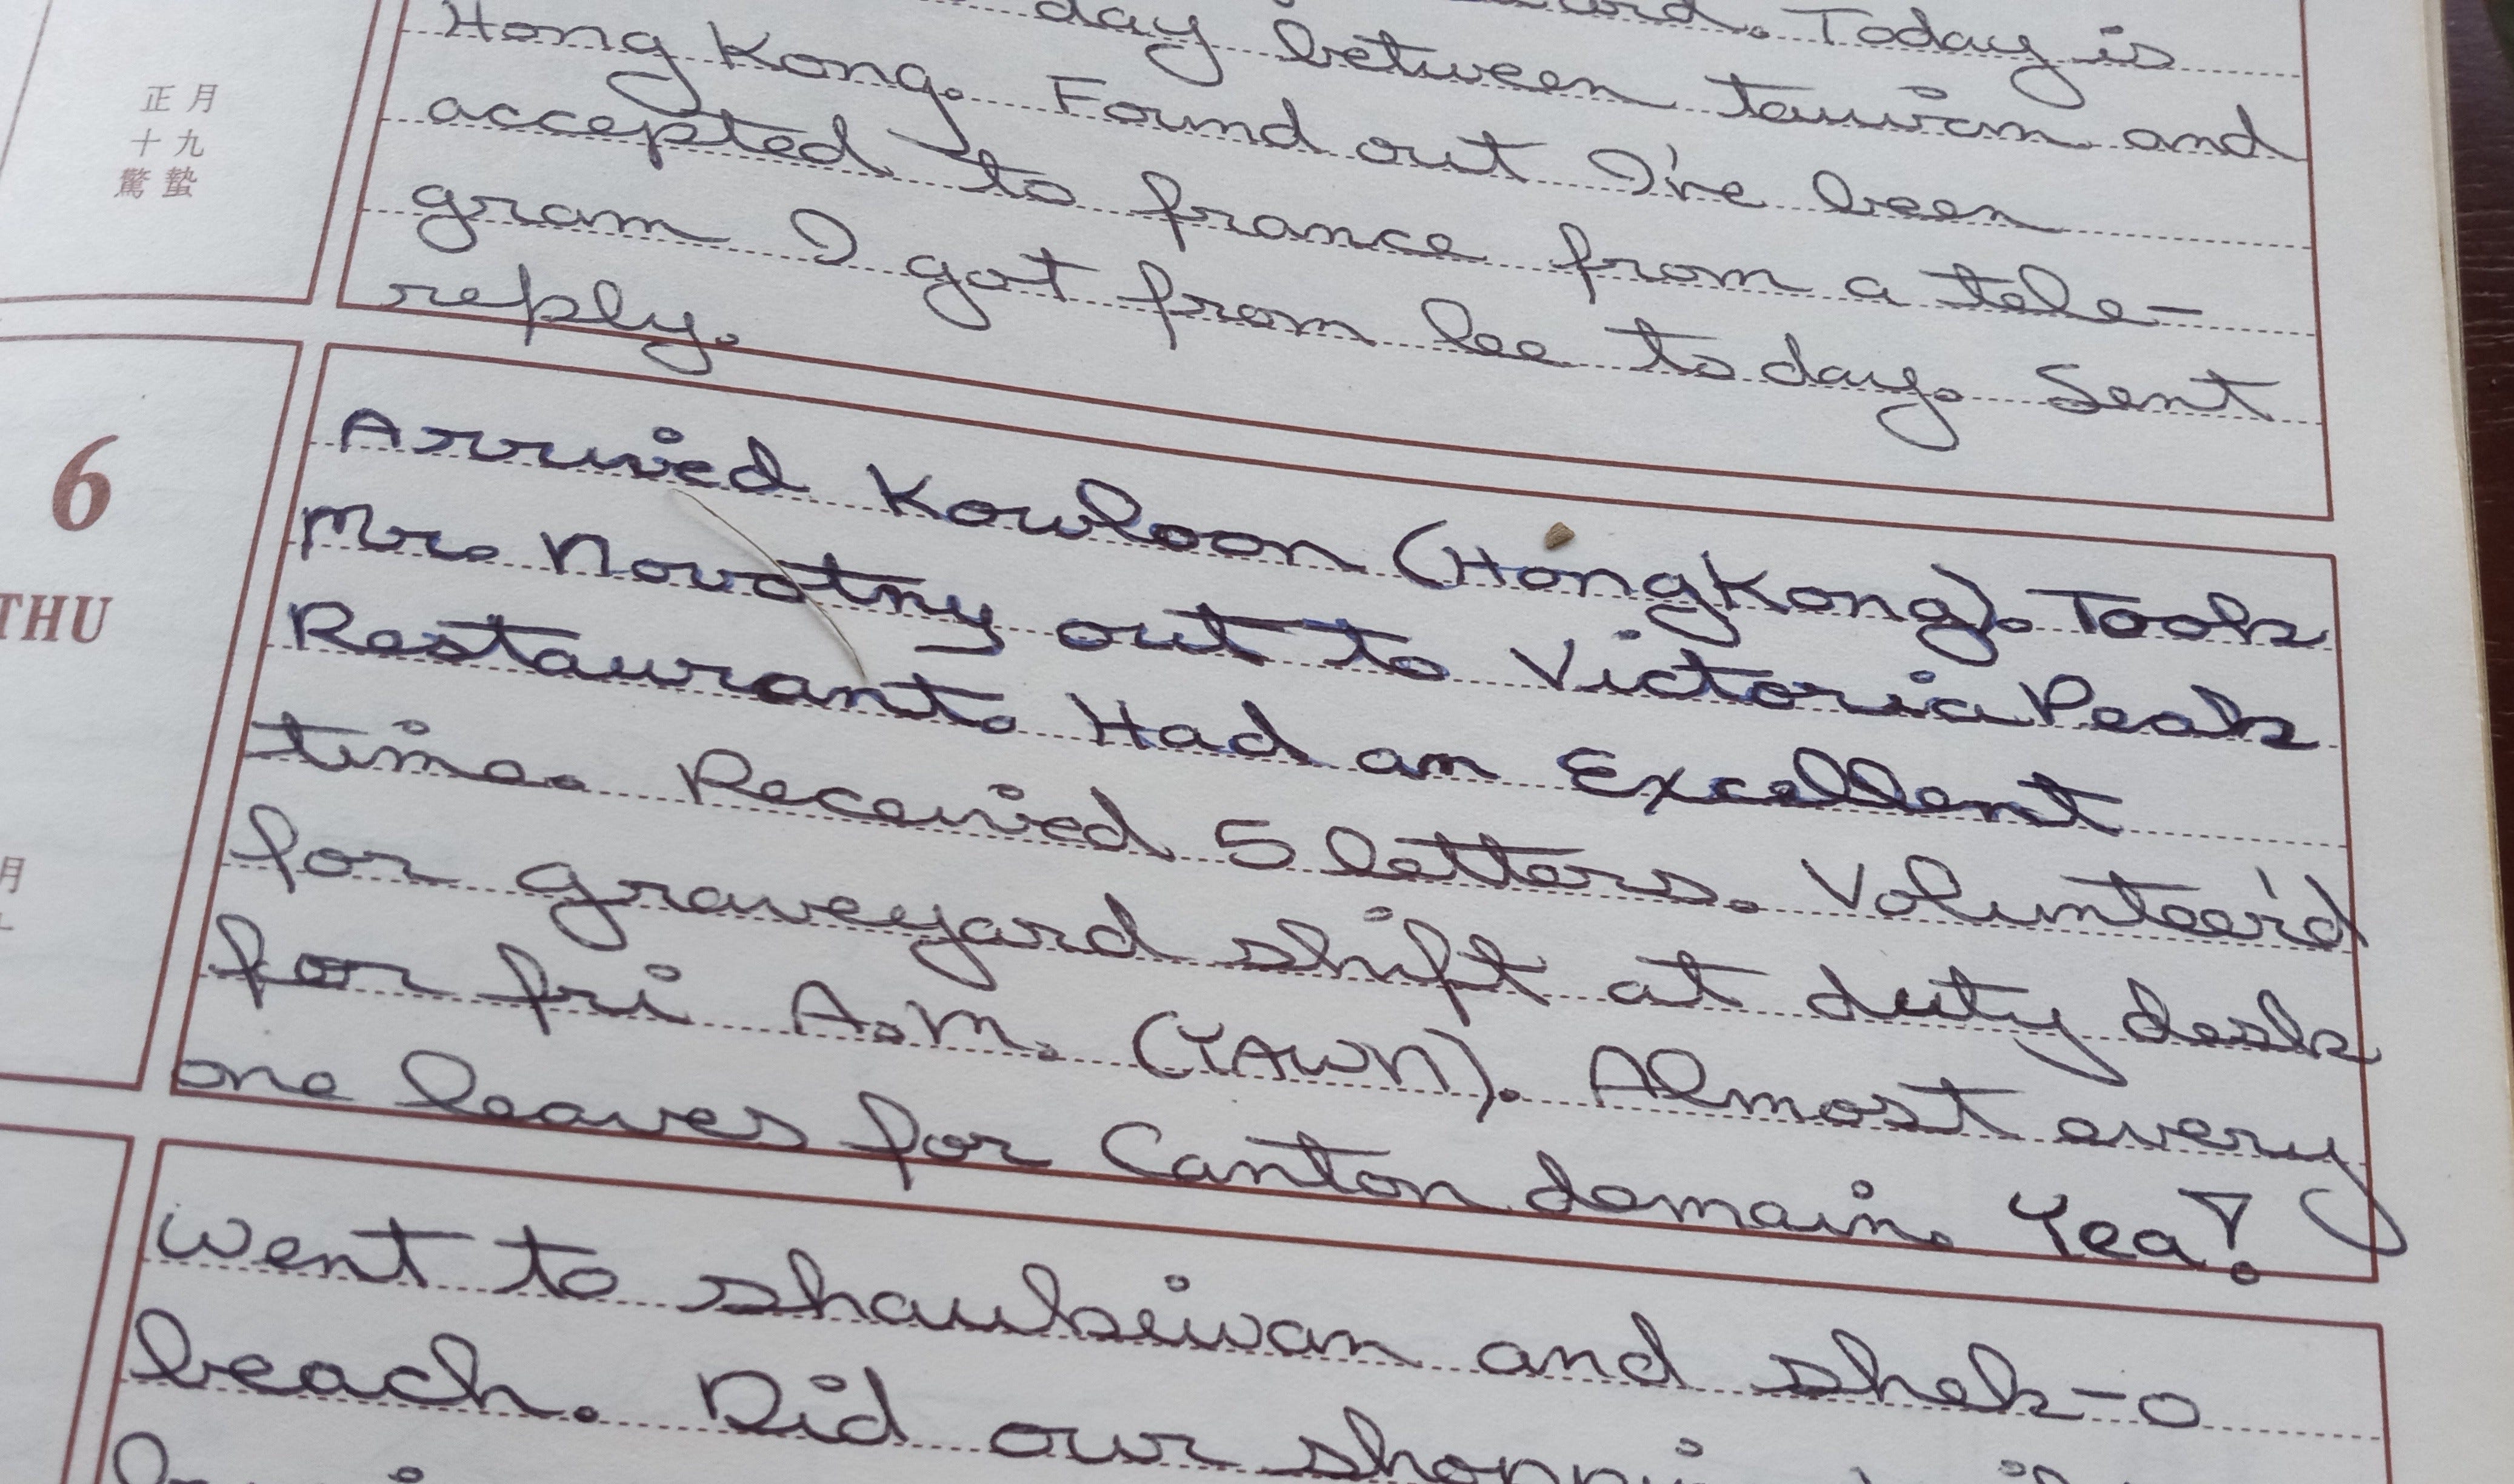 Today is
day between taiwan and
Hong Kong. Found out I've been
accepted to france from a tele-
gram I got from lee today. Sent
reply.
正月
十九
驚蟄
6
THU
月
Arrived Kowloon (HongKong). Took
Mr. Novotny out to Victoria Peak
Restaurant. Had an Excellent
time. Received 5 letters. Volunteer'd
for graveyard shift at duty desk
for fri A.M. (YAWN). Almost every
one leaves for Canton domain. Yea!
went to shaukeiwan and shek-o
beach. Did our